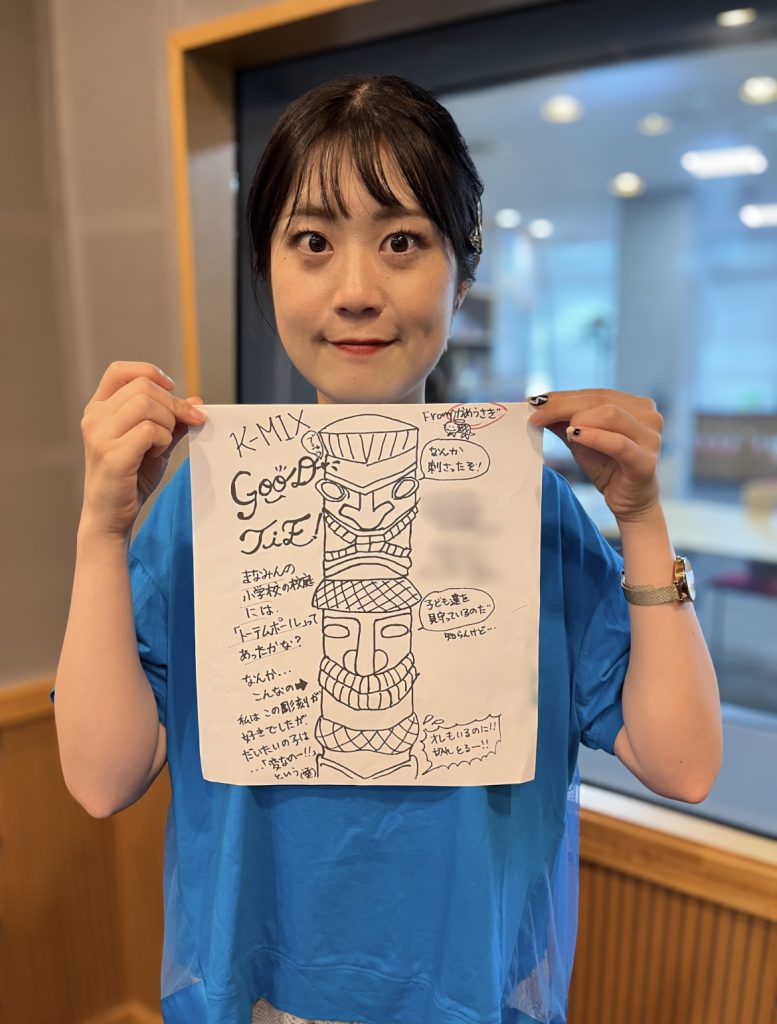 K-MIX
GOOD
TiE!
まなみんの
小学校の校庭
には、
「トーテムポール」って
あったかな？
なんか…
こんなの➡
私はこの彫刻が
好きでしたが、
だいたいの子は
…「変なのー!!」
という(笑)
From かめうさぎ
なんか
刺さったぞ！
子ども達を
見守っているのだ
知らんけど…
オレもいるのに!!
切んとろー!!